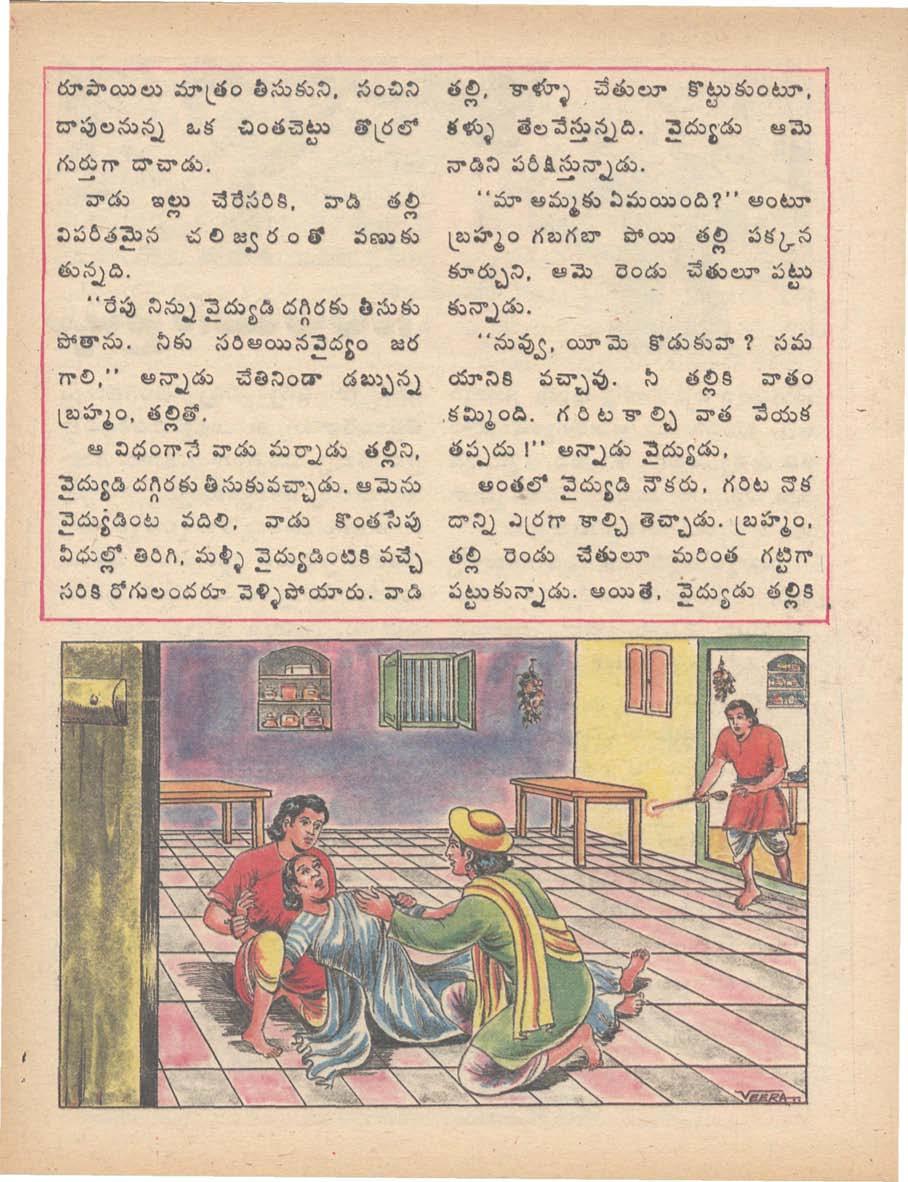 రూపాయిలు మాత్రం తీసుకుని, సంచిని
దాపులనున్న ఒక చింతచెట్టు తొర్రలో
గుర్తుగా దాచాడు.
వాడు ఇల్లు చేరేసరికి, వాడి తల్లి
విపరీతమైన చలిజ్వరంతో వణుకు
తున్నది.
‘‘రేపు నిన్ను వైద్యుడి దగ్గిరకు తీసుకు
పోతాను. నీకు సరిఅయినవైద్యం జర
గాలి,’’ అన్నాడు చేతినిండా డబ్బున్న
బ్రహ్మం, తల్లితో.
ఆ విధంగానే వాడు మర్నాడు తల్లిని,
వైద్యుడి దగ్గిరకు తీసుకువచ్చాడు. ఆమెను
వైద్యుడింట వదిలి, వాడు కొంతసేపు
వీధుల్లో తిరిగి, మళ్ళీ వైద్యుడింటికి వచ్చే
సరికి రోగులందరూ వెళ్ళిపోయారు. వాడి
తల్లి, కాళ్ళూ చేతులూ కొట్టుకుంటూ,
కళ్ళు తేలవేస్తున్నది. వైద్యుడు ఆమె
నాడిని పరీక్షిస్తున్నాడు.
‘‘మా అమ్మకు ఏమయింది?’’ అంటూ
బ్రహ్మం గబగబా పోయి తల్లి పక్కన
కూర్చుని, ఆమె రెండు చేతులూ పట్టు
కున్నాడు.
‘‘నువ్వు, యీమె కొడుకువా? సమ
యానికి వచ్చావు. నీ తల్లికి వాతం
కమ్మింది. గరిట కాల్చి వాత వేయక
తప్పదు!’’ అన్నాడు వైద్యుడు,
అంతలో వైద్యుడి నౌకరు, గరిట నొక
దాన్ని ఎర్రగా కాల్చి తెచ్చాడు. బ్రహ్మం,
తల్లి రెండు చేతులూ మరింత గట్టిగా
పట్టుకున్నాడు. అయితే, వైద్యుడు తల్లికి
VEERA